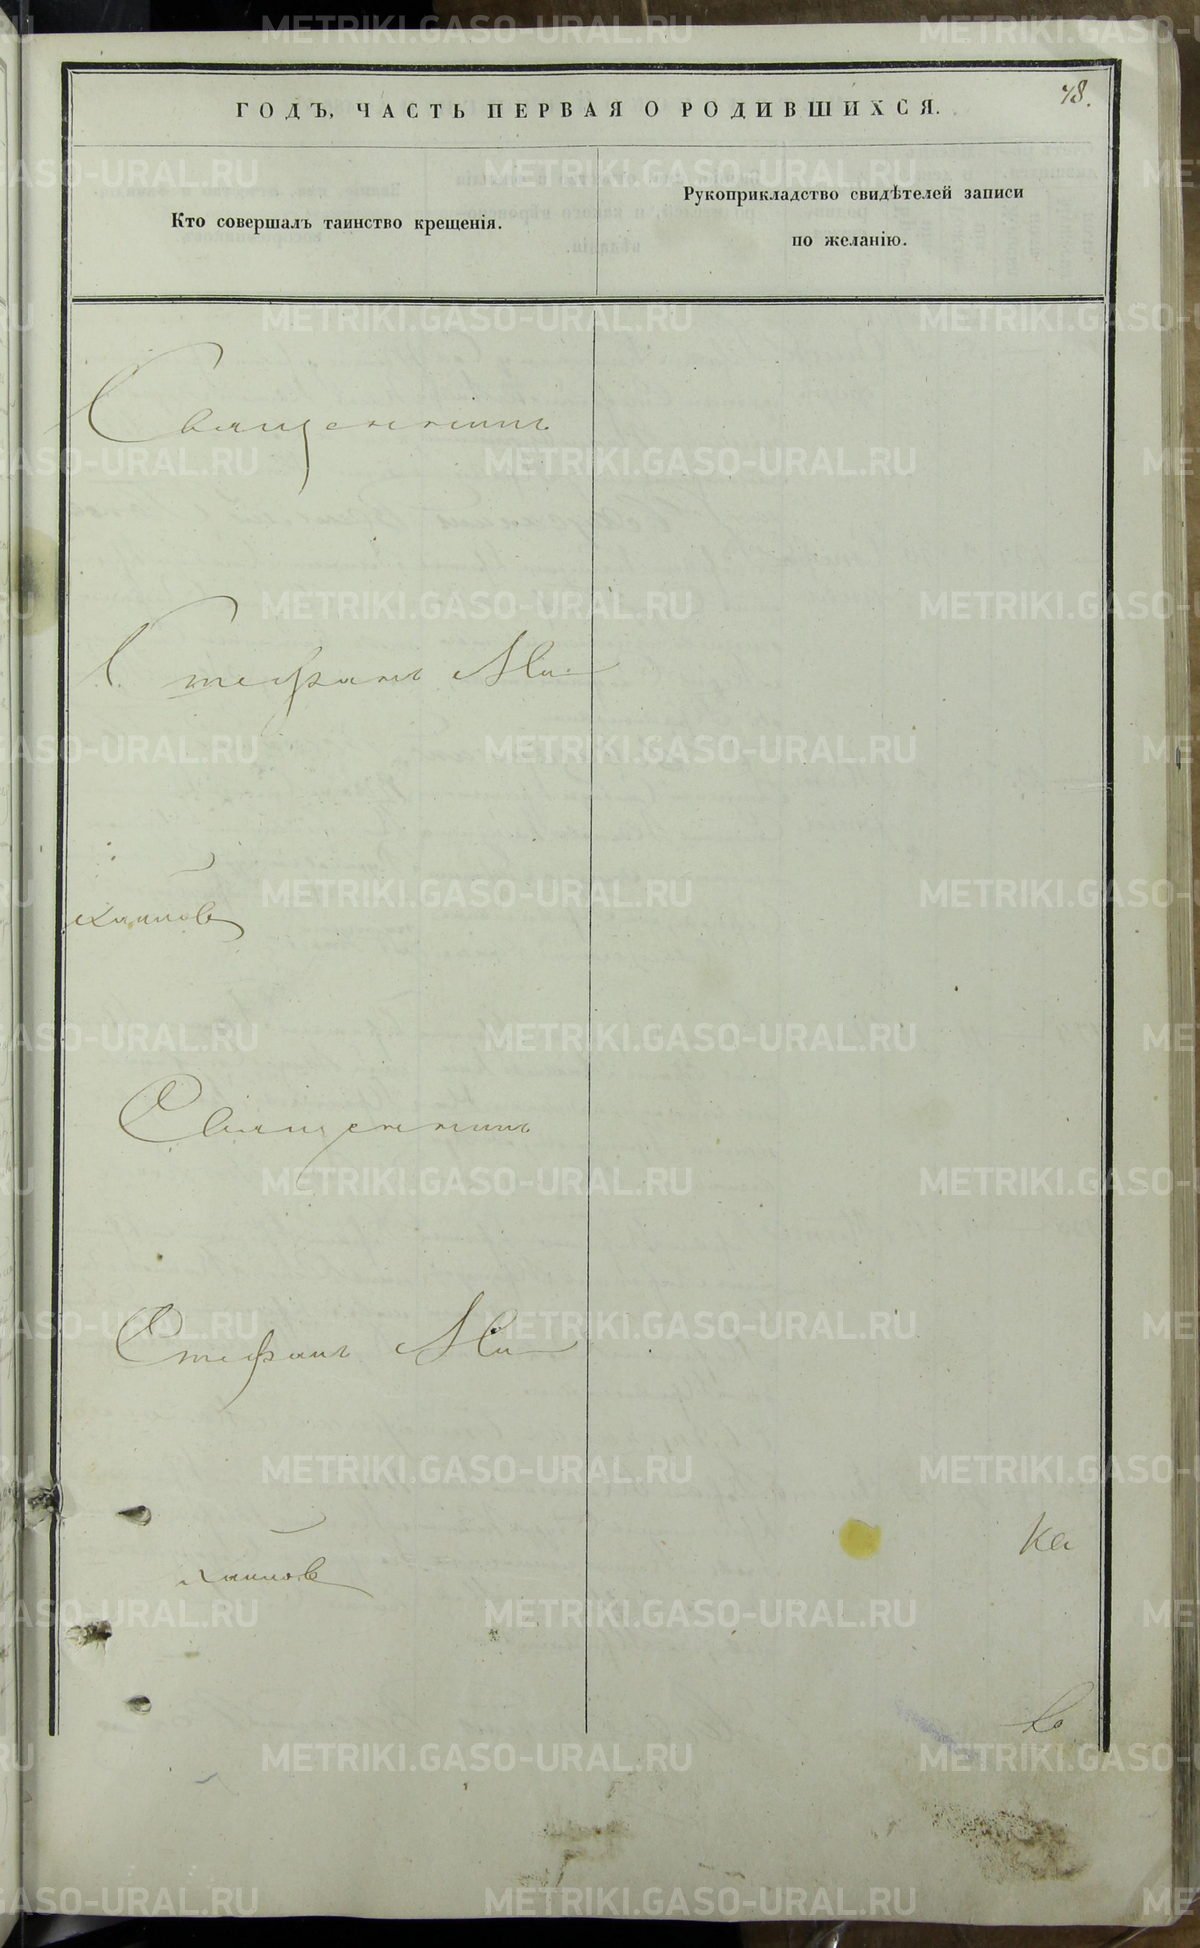 48.
ГОДЪ, ЧАСТЬ ПЕРВАЯ О РОДИВШИХСЯ.
Кто совершалъ таинство крещенія.
Рукоприкладство свидѣтелей записи
по желанію.
Священникъ
Стефанъ Ми-
хайлов
Священникъ
Стефанъ Ми-
хайлов
Ка
METRIKI.GASO-URAL.RU